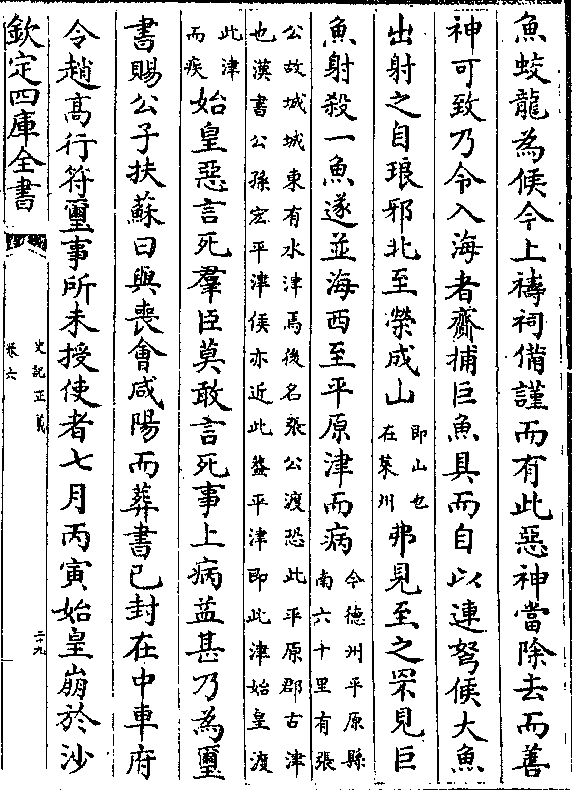 魚蛟龍為候今上禱祠備謹而有此惡神當除去而善
神可致乃令入海者齎捕巨魚具而自以連弩候大魚
出射之自琅邪北至榮成山
即山也
在萊州
弗見至之罘見巨
魚射殺一魚遂並海西至平原津而病
今德州平原縣
南六十里有張
公故城城東有水津焉後名張公渡恐此平原郡古津
也漢書公孫宏平津侯亦近此葢平津即此津始皇渡
此津
而疾
始皇惡言死羣臣莫敢言死事上病益甚乃為璽
書賜公子扶蘇曰與喪會咸陽而葬書已封在中車府
令趙高行符璽事所未授使者七月丙寅始皇崩於沙
欽定四庫全書
史記正義
卷六
二九